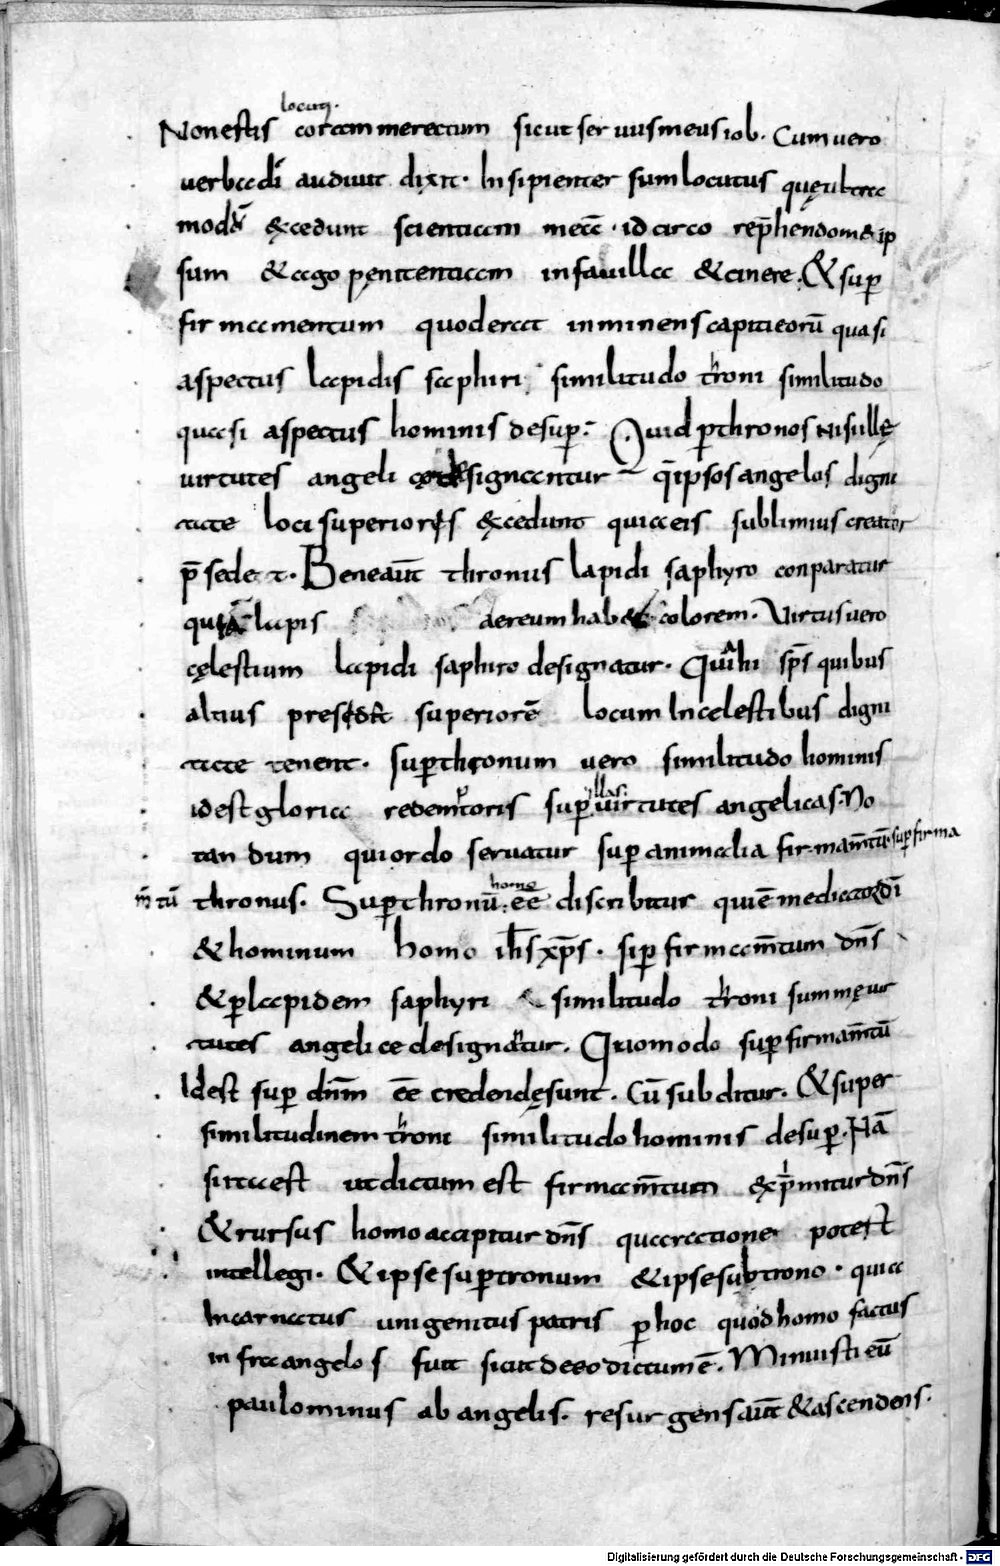 locuti
Non estis coram me rectum sicut seruus meus iob. Cum uero
uerba dī audiuit dixit. Insipienter sum locutus quę ultra
modū excedunt scientiam meā. idcirco rep̄hendo me ip
sum & ago penitentiam in fauilla & cinere. & sup̄
firmamentum quod erat inminens capiti eorū quasi
aspectus lapidis saphiri similitudo troni similitudo
quasi aspectus hominis desup̄. Quid p̄ thronos nisi ille
uirtutes angeli designantur q̄ ipsos angelos digni
tate loci superiores excedunt quia eis sublimius creator
p̄sedet. Bene aūt thronus lapidi saphyro conparatur
quia lapis aereum hab& colorem. Virtus uero
cęlestium lapidi saphiro designatur. Quia hi sp̄s quibus
altius presedet superiorē locum In celestibus digni
tate tenent. sup̄ thronum uero similitudo hominis
id est gloria redemptoris sup̄ illas uirtutes angelicas. No
tandum qui ordo seruatur sup̄ animalia firmam̄tū. sup̄ firma
m̄tū thronus. Sup̄ thronū homo eē discribitur qui ē mediator dī
& hominum homo ih̄s xp̄s. sup̄ firmam̄tum dn̄s
& p̄ lapidem saphyri similitudo troni summę uir
tutes angelice designatur. Quomodo sup̄ firmam̄tū
Id est sup̄ dn̄m eē credendę sunt. Cū subditur. & super
similitudinem troni similitudo hominis desup̄. Nā
si ita est ut dictum est firmam̄tum exp̄mitur dn̄s
& rursus homo accipitur dn̄s qua ratione potest
intellegi. & ipse sup̄ tronum & ipse sub trono. quia
Incarnatus unigenitus patris p̄ hoc quod homo factus
infra angelos fuit sicut de eo dictum ē. Minuisti eū
paulominus ab angelis. resurgens aūt & ascendens.
Digitalisierung gefördert durch die Deutsche Forschungsgemeinschaft - DFG